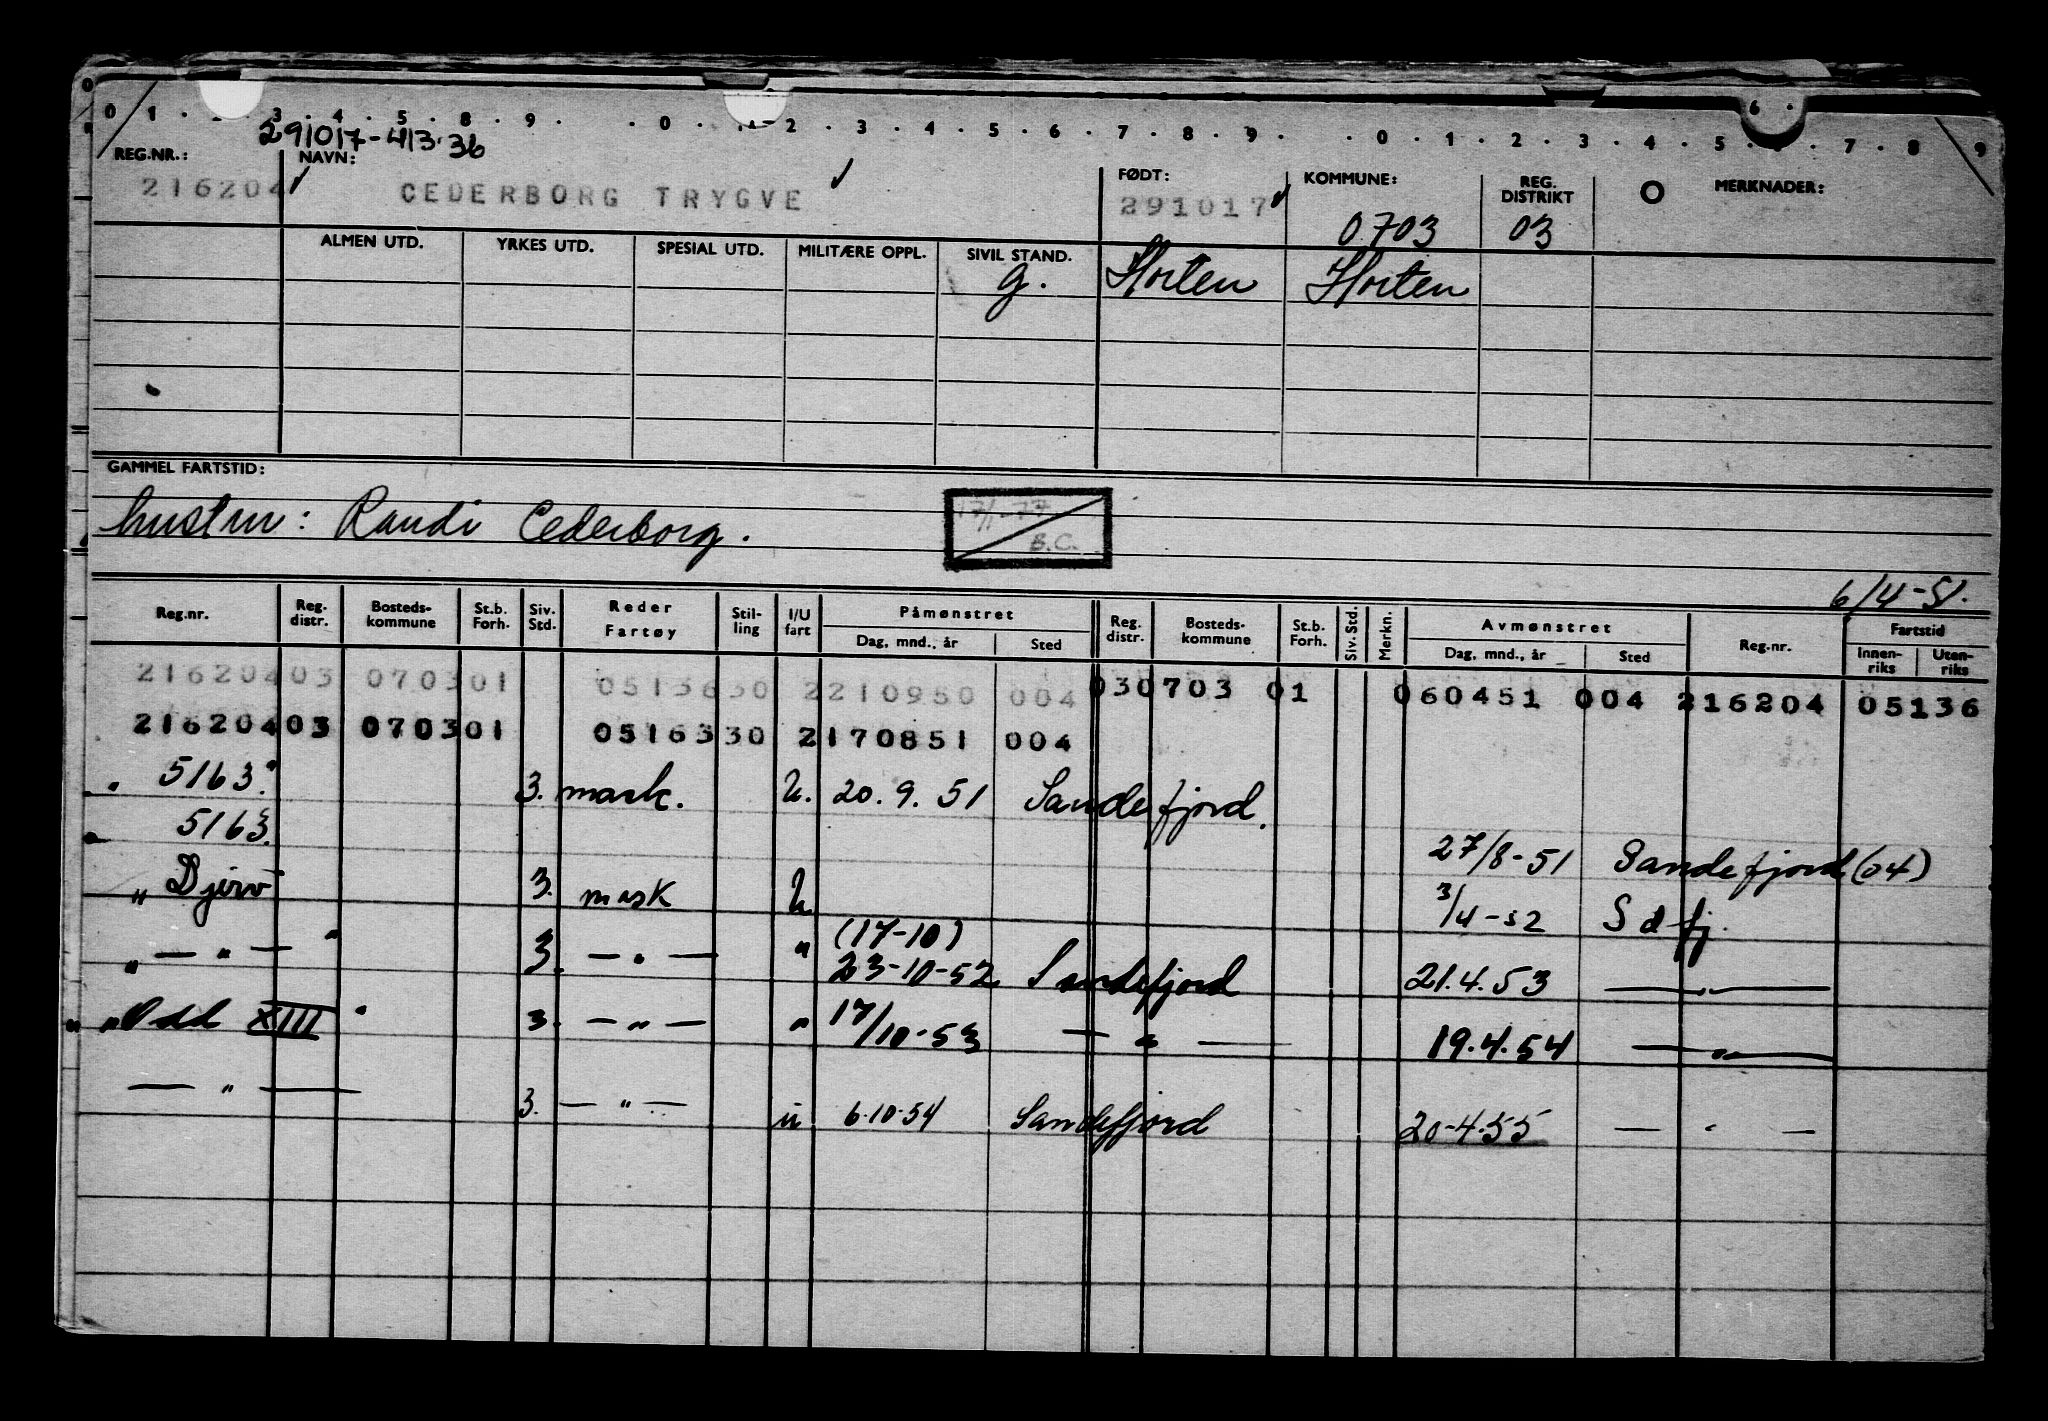 0 1 . 3 . 4 . 5 . 8 . 9 . . 0 . 1 2 . 3 . 4 . 5 . 6 . 7 . 8 . 9 . . 0 . 1 . 2 . 3 . 4 . 5 . 6 . 7 . 8 . 9
291017-413.36
REG.NR.: NAVN: FØDT: KOMMUNE: REG. DISTRIKT MERKNADER:
216204 CEDERBORG TRYGVE 291017 0703 03
ALMEN UTD. YRKES UTD. SPESIAL UTD. MILITÆRE OPPL. SIVIL STAND.
g. Horten Horten
GAMMEL FARTSTID:
hustru: Randi Cederborg.
17/1-77
B.C.
6/4-51.
Reg.nr. Reg. distr. Bosteds-kommune St.b. Forh. Siv. Std. Reder Fartøy Stil-ling I/U fart Påmønstret Reg. distr. Bosteds-kommune St.b. Forh. Siv. Std. Merkn. Avmønstret Reg.nr. Fartstid
Dag, mnd., år Sted Dag, mnd., år Sted Innen-riks Uten-riks
216204 03 0703 01 05136 30 2 210950 004 03 0703 01 060451 004 216204 05136
216204 03 0703 01 05163 30 2 170851 004
" 5163. 3. mask. U. 20. 9. 51 Sandefjord.
" 5163. 27/8-51 Sandefjord (04)
" Djerv 3. mask U 3/4-52 Sdfj.
" — " — " 3. — " — " (17-10)
23-10-52 Sandefjord 21.4.53 — " —
" Odd XIII " 3. — " — " 17/10-53 — " — 19.4.54 — " —
— " — 3. — " — u 6.10.54 Sandefjord 20-4.55 — " —